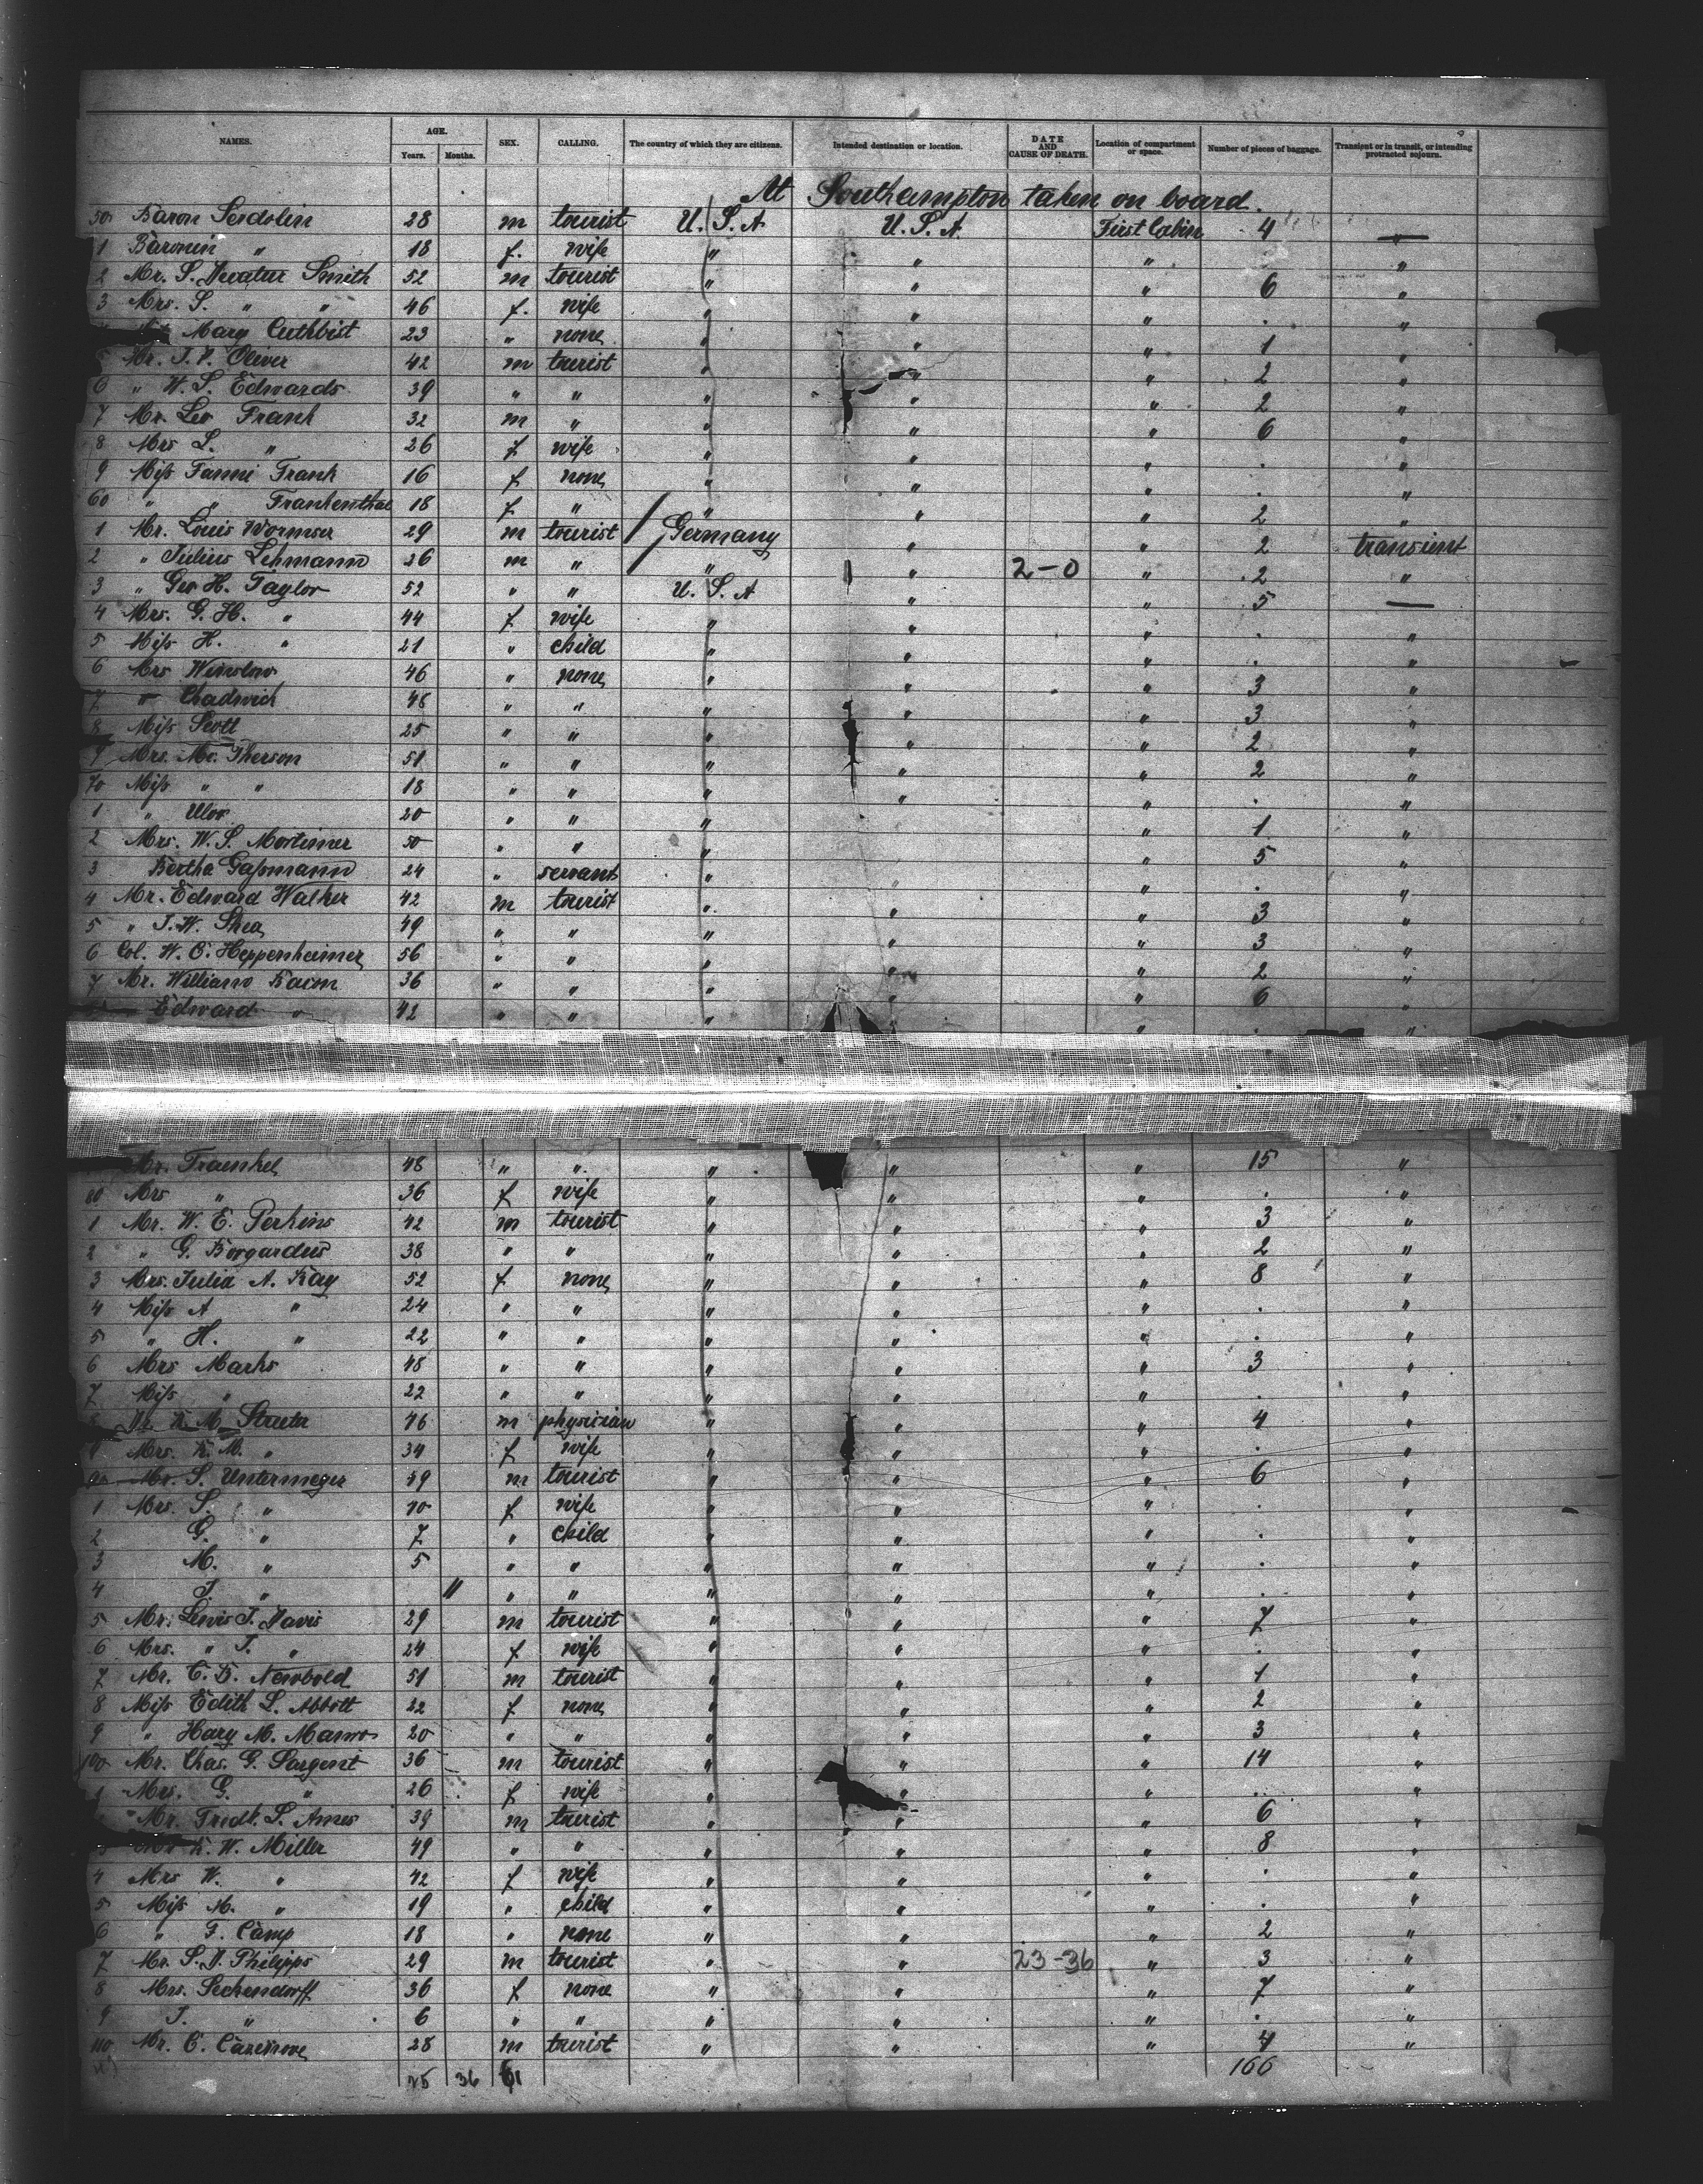 NAMES. AGE. Years. Months. SEX. CALLING. The country of which they are citizens. Intended destination or location. DATE AND CAUSE OF DEATH. Location of compartment or space. Number of pieces of baggage. Transient or in transit, or intending protracted sojourn.
At Southampton taken on board.
50 Baron Serdolin 28 m tourist U.S.A U.S.A. First Cabin 4 —
1 Baronin " 18 f. wife " " " "
2 Mr. S. Decatur Smith 52 m tourist " " " 6 "
3 Mrs. S. " " 46 f. wife " " " . "
Mary Cuthbist 23 " none " " 1 "
5 Mr. J. V. Oliver 42 m tourist " " " 2 "
6 " W. S. Edwards 39 " " " " " 2 "
7 Mr. Leo Frank 32 m " " " " 6 "
8 Mrs L. " 26 f wife " " " . "
9 Miss Fanni Frank 16 f none " " " . "
60 " " Frankenthal 18 f " " " " 2 "
1 Mr. Louis Wormser 29 m tourist / Germany " " 2 transient
2 " Julius Lehmann 26 m " / " " 2-0 " 2 "
3 " Geo H. Taylor 52 " " U.S.A " " 5 —
4 Mrs. G. H. " 44 f wife " " " . "
5 Miss H. " 21 " child " " " . "
6 Mrs Winslow 46 " none " " " 3 "
7 " Chadwick 48 " " " " " 3 "
8 Miss Scott 25 " " " " " 2 "
9 Mrs. Mc. Pherson 51 " " " " " 2 "
70 Miss " " 18 " " " " " . "
1 " Ulor 20 " " " " 1 "
2 Mrs. W. S. Mortimer 50 " " " " 5 "
3 Bertha Gassmann 24 " servant " " " . "
4 Mr. Edward Walker 42 m tourist " " " 3 "
5 " J. W. Shea 49 " " " " " 3 "
6 Col. W. C. Heppenheimer 56 " " " " " 2 "
7 Mr. William Bacon 36 " " " " " 6 "
" Edward " 42 " " " " . "
Mr. Fraenkel 48 " " " " " 15 "
80 Mrs " 36 f wife " " " . "
1 Mr. W. E. Perkins 42 m tourist " " " 3 "
2 " G. Borgardus 38 " " " " " 2 "
3 Mrs. Julia A. Kay 52 f none " " " 8 "
4 Miss A " 24 " " " " " . "
5 " H. " 22 " " " " " . "
6 Mrs Marks 48 " " " " " 3 "
7 Miss " 22 " " " " " . "
M. Streeter 46 m physician " " " 4 "
9 Mrs. K. M. " 34 f wife " " " . "
90 Mr. S. Untermeyer 49 m tourist " " " 6 "
1 Mrs. S. " f wife " " " . "
2 G. " 7 " child " " " . "
3 M. " 5 " " " " " . "
4 " 11 " " " " " . "
5 Mr. Lewis J. Davis 29 m tourist " " " 7 "
6 Mrs. " J. " 24 f wife " " " . "
7 Mr. C. B. Newbold 51 m tourist " " " 1 "
8 Miss Edith L. Abbott 22 f none " " " 2 "
9 " Hary M. 20 " " " " " 3 "
100 Mr. Chas. G. Sargent 36 m tourist " " " 14 "
1 Mrs. G. " 26 f wife " " . "
Mr. Fredk. L. Ames 39 m tourist " " " 6 "
K. W. Miller 49 " " " " " 8 "
4 Mrs W. " 42 f wife " " " . "
5 Miss M. " 19 " child " " " . "
6 " F. Camp 18 " none " " " 2 "
7 Mr. S. D. Philipps 29 m tourist " " 23-36 " 3 "
8 Mrs. Seckendorff 36 f none " " " 7 "
9 J. " 6 " " " " " . "
110 Mr. C. Cazenove 28 m tourist " " " 4 "
25 36 61 166